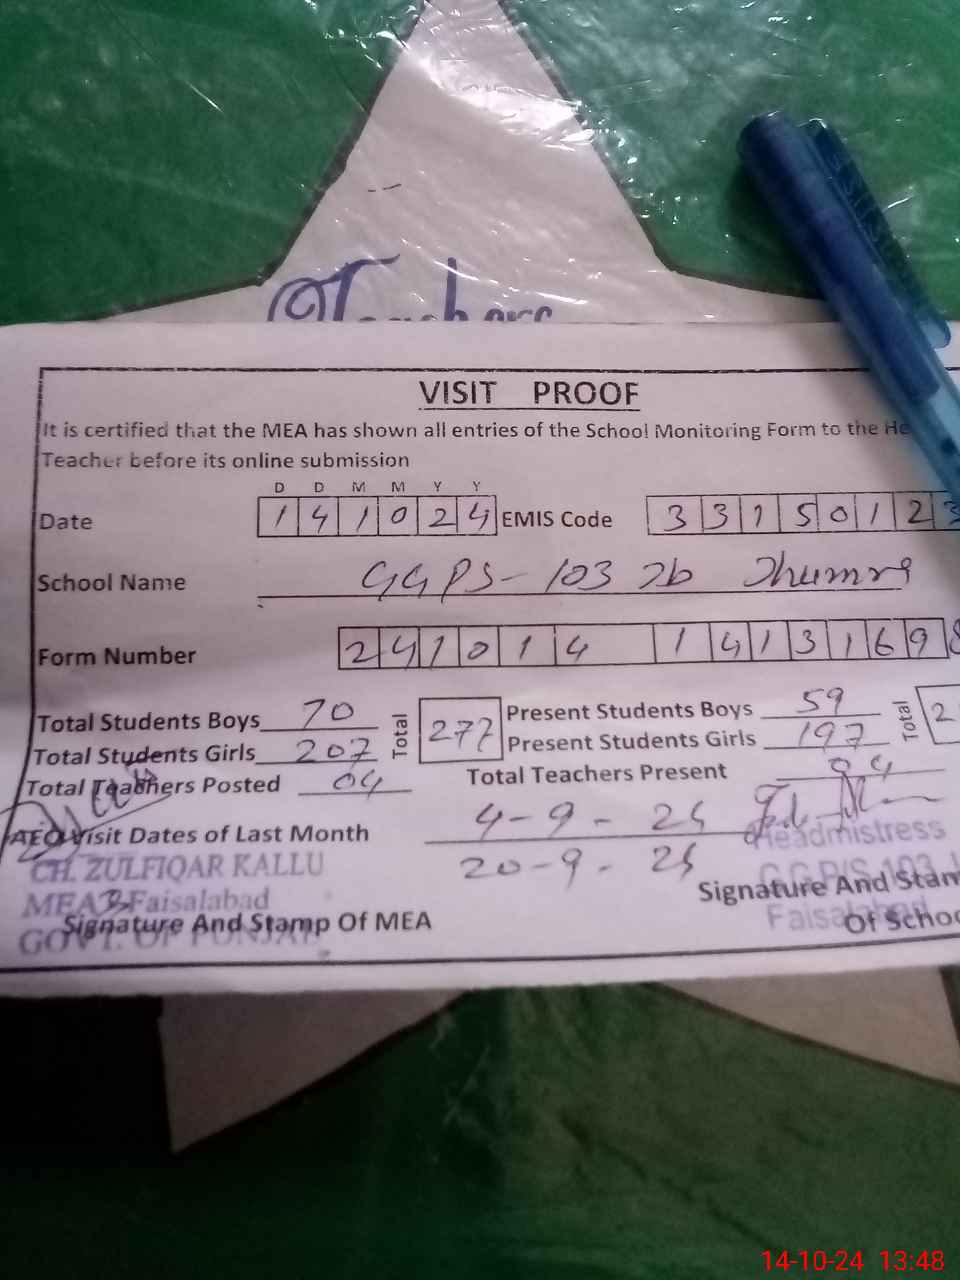 Teachers
VISIT PROOF
It is certified that the MEA has shown all entries of the School Monitoring Form to the He
Teacher before its online submission
D D M M Y Y
Date 1 4 1 0 2 4 EMIS Code 3 3 1 5 0 1 2 3
School Name GGPS-103 Jb Jhumra
Form Number 2 4 1 0 1 4 1 4 1 3 1 6 9 8
Total Students Boys 70 Total 277 Present Students Boys 59 Total 2
Total Students Girls 207 Present Students Girls 197
Total Teachers Posted 04 Total Teachers Present 04
AEO Visit Dates of Last Month 4-9-24
20-9-24
CH. ZULFIQAR KALLU
MEA Faisalabad
GOVT. OF PUNJAB
Signature And Stamp Of MEA
Headmistress
G.G.P/S 103 J
Faisalabad
Signature And Stam
Of Schoo
14-10-24 13:48